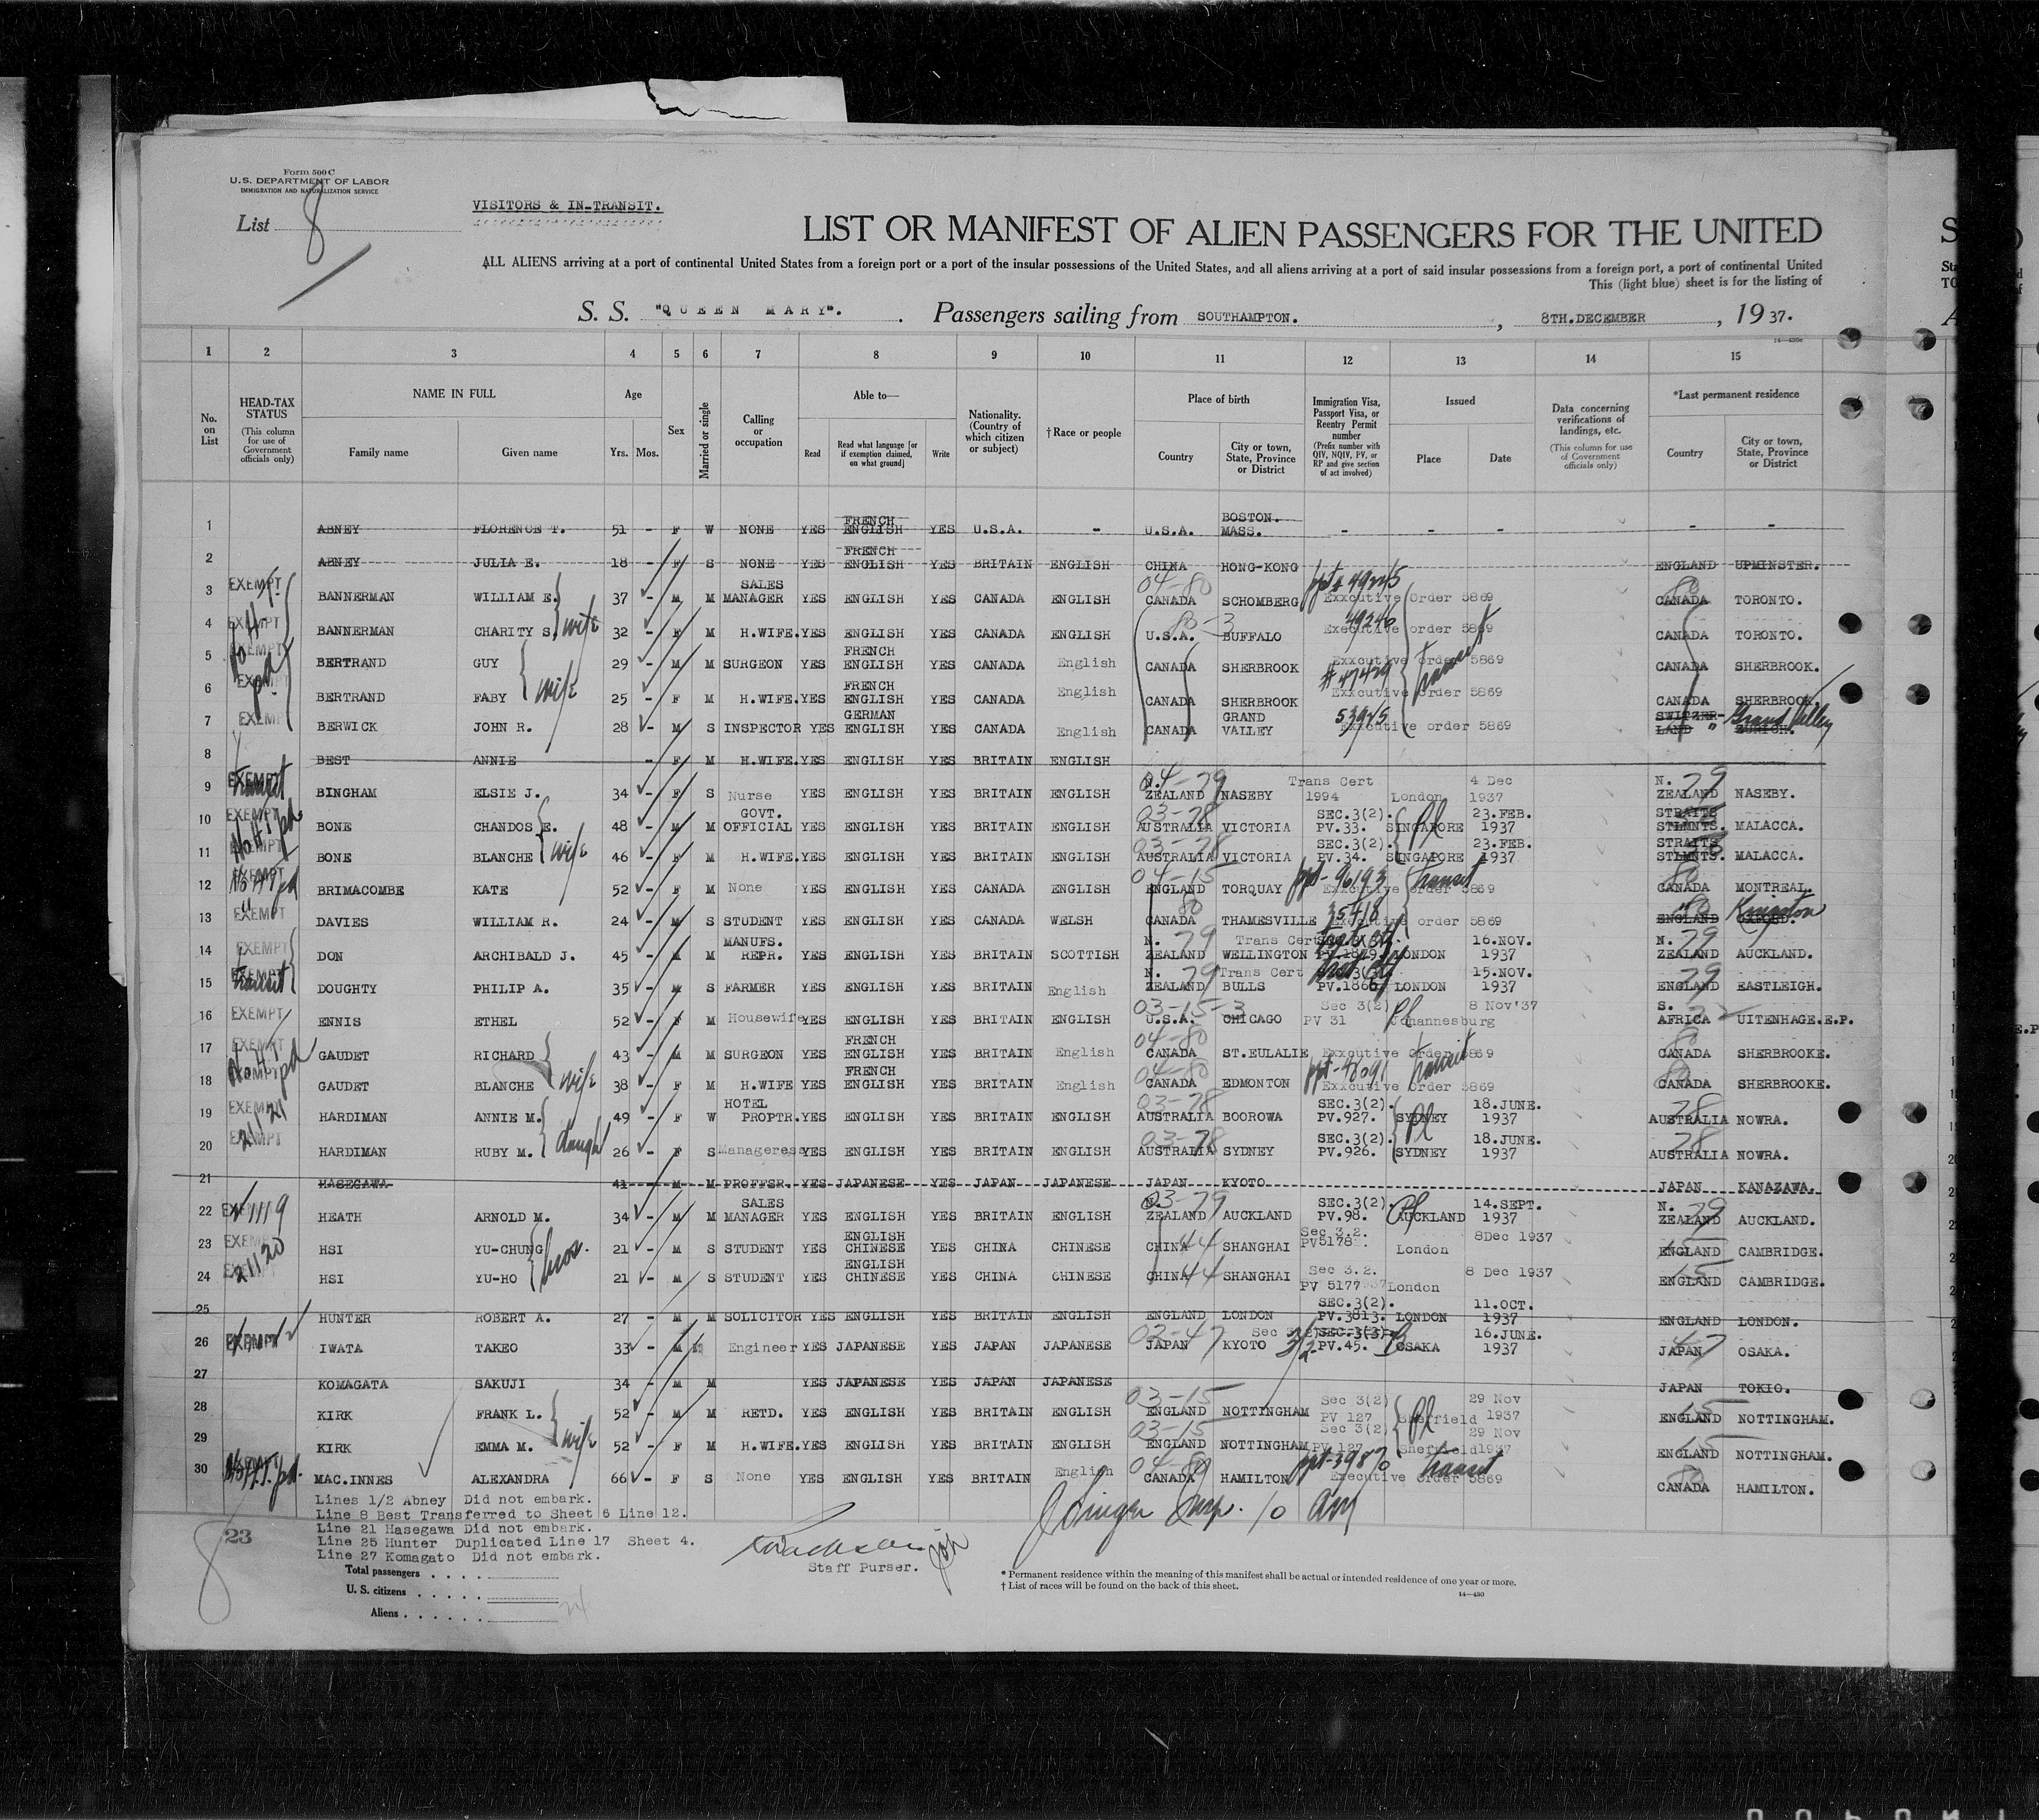 Form 500 C
U.S. DEPARTMENT OF LABOR
IMMIGRATION AND NATURALIZATION SERVICE
List 8
VISITORS & IN-TRANSIT.
LIST OR MANIFEST OF ALIEN PASSENGERS FOR THE UNITED
ALL ALIENS arriving at a port of continental United States from a foreign port or a port of the insular possessions of the United States, and all aliens arriving at a port of said insular possessions from a foreign port, a port of continental United
This (light blue) sheet is for the listing of
S. S. "QUEEN MARY". Passengers sailing from SOUTHAMPTON. , 8TH.DECEMBER , 19 37.
1 2 3 4 5 6 7 8 9 10 11 12 13 14 15
No. on List
HEAD-TAX STATUS (This column for use of Government officials only)
NAME IN FULL Family name Given name
Age Yrs. Mos.
Sex
Married or single
Calling or occupation
Able to— Read Read what language [or if exemption claimed, on what ground] Write
Nationality. (Country of which citizen or subject)
† Race or people
Place of birth Country City or town, State, Province or District
Immigration Visa, Passport Visa, or Reentry Permit number (Prefix number with QIV, NQIV, PV, or RP and give section of act involved)
Issued Place Date
Data concerning verifications of landings, etc. (This column for use of Government officials only)
*Last permanent residence Country City or town, State, Province or District
1 ABNEY FLORENCE T. 51 - F W NONE YES FRENCH ENGLISH YES U.S.A. - U.S.A. BOSTON. MASS. - - - - -
2 ABNEY JULIA E. 18 - F S NONE YES FRENCH ENGLISH YES BRITAIN ENGLISH CHINA HONG-KONG ENGLAND UPMINSTER.
3 EXEMPT BANNERMAN WILLIAM E. 37 - M M SALES MANAGER YES ENGLISH YES CANADA ENGLISH 04-80 CANADA SCHOMBERG Exxcutive Order 5869 CANADA TORONTO.
4 EXEMPT BANNERMAN CHARITY S. wife 32 - F M H.WIFE. YES ENGLISH YES CANADA ENGLISH U.S.A. BUFFALO 49246 Executive order 5869 CANADA TORONTO.
5 EXEMPT BERTRAND GUY 29 - M M SURGEON YES FRENCH ENGLISH YES CANADA English CANADA SHERBROOK Exxcutive Order 5869 CANADA SHERBROOK.
6 EXEMPT BERTRAND FABY wife 25 - F M H.WIFE. YES FRENCH ENGLISH YES CANADA English CANADA SHERBROOK # 47429 Exxcutive Order 5869 transit CANADA SHERBROOK.
7 EXEMPT BERWICK JOHN R. 28 - M S INSPECTOR YES GERMAN ENGLISH YES CANADA English CANADA GRAND VALLEY Executive order 5869 SWITZER-LAND ZURICH. Grand Valley
8 BEST ANNIE - F M H.WIFE. YES ENGLISH YES BRITAIN ENGLISH
9 EXEMPT transit BINGHAM ELSIE J. 34 - F S Nurse YES ENGLISH YES BRITAIN ENGLISH 04-79 N. ZEALAND NASEBY Trans Cert 1994 London 4 Dec 1937 N. ZEALAND 79 NASEBY.
10 EXEMPT BONE CHANDOS E. 48 - M M GOVT. OFFICIAL YES ENGLISH YES BRITAIN ENGLISH 03-78 AUSTRALIA VICTORIA SEC.3(2). PV.33. SINGAPORE 23.FEB. 1937 STRAITS STLMNTS. MALACCA.
11 EXEMPT BONE BLANCHE wife 46 - F M H.WIFE. YES ENGLISH YES BRITAIN ENGLISH 03-78 AUSTRALIA VICTORIA SEC.3(2). PV.34. SINGAPORE 23.FEB. 1937 STRAITS STLMNTS. MALACCA.
12 EXEMPT BRIMACOMBE KATE 52 - F M None YES ENGLISH YES CANADA ENGLISH 04-15 ENGLAND TORQUAY ppt- 96193 Executive Order 5869 transit CANADA MONTREAL.
13 EXEMPT DAVIES WILLIAM R. 24 - M S STUDENT YES ENGLISH YES CANADA WELSH 80 CANADA THAMESVILLE 35418 Executive order 5869 ENGLAND OXFORD. Kingston
14 EXEMPT DON ARCHIBALD J. 45 - M M MANUFS. REPR. YES ENGLISH YES BRITAIN SCOTTISH N. ZEALAND 79 WELLINGTON Trans Cert PV.1879 LONDON 16.NOV. 1937 N. ZEALAND 79 AUCKLAND.
15 EXEMPT transit DOUGHTY PHILIP A. 35 - M S FARMER YES ENGLISH YES BRITAIN English N. ZEALAND 79 BULLS Trans Cert PV.1866 LONDON 15.NOV. 1937 79 ENGLAND EASTLEIGH.
16 EXEMPT ENNIS ETHEL 52 - F M Housewife YES ENGLISH YES BRITAIN ENGLISH 03-15-3 U.S.A. CHICAGO Sec 3(2) PV 31 Johannesburg 8 Nov'37 S. AFRICA UITENHAGE.E.P.
17 EXEMPT GAUDET RICHARD 43 - M M SURGEON YES FRENCH ENGLISH YES BRITAIN English 04-80 CANADA ST.EULALIE Exxcutive Order 5869 CANADA SHERBROOKE.
18 EXEMPT GAUDET BLANCHE wife 38 - F M H.WIFE YES FRENCH ENGLISH YES BRITAIN English 04-80 CANADA EDMONTON Exxcutive Order 5869 transit CANADA SHERBROOKE.
19 EXEMPT HARDIMAN ANNIE M. 49 - F W HOTEL PROPTR. YES ENGLISH YES BRITAIN ENGLISH 03-78 AUSTRALIA BOOROWA SEC.3(2). PV.927. SYDNEY 18.JUNE. 1937 78 AUSTRALIA NOWRA.
20 EXEMPT HARDIMAN RUBY M. 26 - F S Manageress YES ENGLISH YES BRITAIN ENGLISH 03-78 AUSTRALIA SYDNEY SEC.3(2). PV.926. SYDNEY 18.JUNE. 1937 78 AUSTRALIA NOWRA.
21 HASEGAWA 41 - M M PROFFSR. YES JAPANESE YES JAPAN JAPANESE JAPAN KYOTO JAPAN KANAZAWA.
22 HEATH ARNOLD M. 34 - M M SALES MANAGER YES ENGLISH YES BRITAIN ENGLISH 03-79 N. ZEALAND AUCKLAND SEC.3(2). PV.98. AUCKLAND 14.SEPT. 1937 N. ZEALAND 79 AUCKLAND.
23 HSI YU-CHUNG 21 - M S STUDENT YES ENGLISH CHINESE YES CHINA CHINESE CHINA 44 SHANGHAI Sec 3.2. PV5178 London 8Dec 1937 15 ENGLAND CAMBRIDGE.
24 HSI YU-HO bros. 21 - M S STUDENT YES ENGLISH CHINESE YES CHINA CHINESE CHINA 44 SHANGHAI Sec 3.2. PV 5177 London 8 Dec 1937 15 ENGLAND CAMBRIDGE.
25 HUNTER ROBERT A. 27 - M M SOLICITOR YES ENGLISH YES BRITAIN ENGLISH ENGLAND LONDON SEC.3(2). PV.3813. LONDON 11.OCT. 1937 ENGLAND LONDON.
26 EXEMPT IWATA TAKEO 33 - M M Engineer YES JAPANESE YES JAPAN JAPANESE JAPAN KYOTO PV.45. OSAKA 16.JUNE. 1937 47 JAPAN OSAKA.
27 KOMAGATA SAKUJI 34 - M M YES JAPANESE YES JAPAN JAPANESE JAPAN TOKIO.
28 KIRK FRANK L. 52 - M M RETD. YES ENGLISH YES BRITAIN ENGLISH 03-15 ENGLAND NOTTINGHAM Sec 3(2) PV 127 Sheffield 29 Nov 1937 15 ENGLAND NOTTINGHAM.
29 KIRK EMMA M. wife 52 - F M H.WIFE. YES ENGLISH YES BRITAIN ENGLISH 03-15 ENGLAND NOTTINGHAM Sec 3(2) PV 127 Sheffield 29 Nov 1937 15 ENGLAND NOTTINGHAM.
30 MAC.INNES ALEXANDRA 66 - F S None YES ENGLISH YES BRITAIN English 04-80 CANADA HAMILTON ppt-39870 Executive Order 5869 transit CANADA HAMILTON.
Lines 1/2 Abney Did not embark.
Line 8 Best Transferred to Sheet 6 Line 12.
Line 21 Hasegawa Did not embark.
Line 25 Hunter Duplicated Line 17 Sheet 4.
Line 27 Komagato Did not embark.
8 23
Total passengers
U. S. citizens
Aliens 24
Staff Purser.
* Permanent residence within the meaning of this manifest shall be actual or intended residence of one year or more.
† List of races will be found on the back of this sheet.
14—430